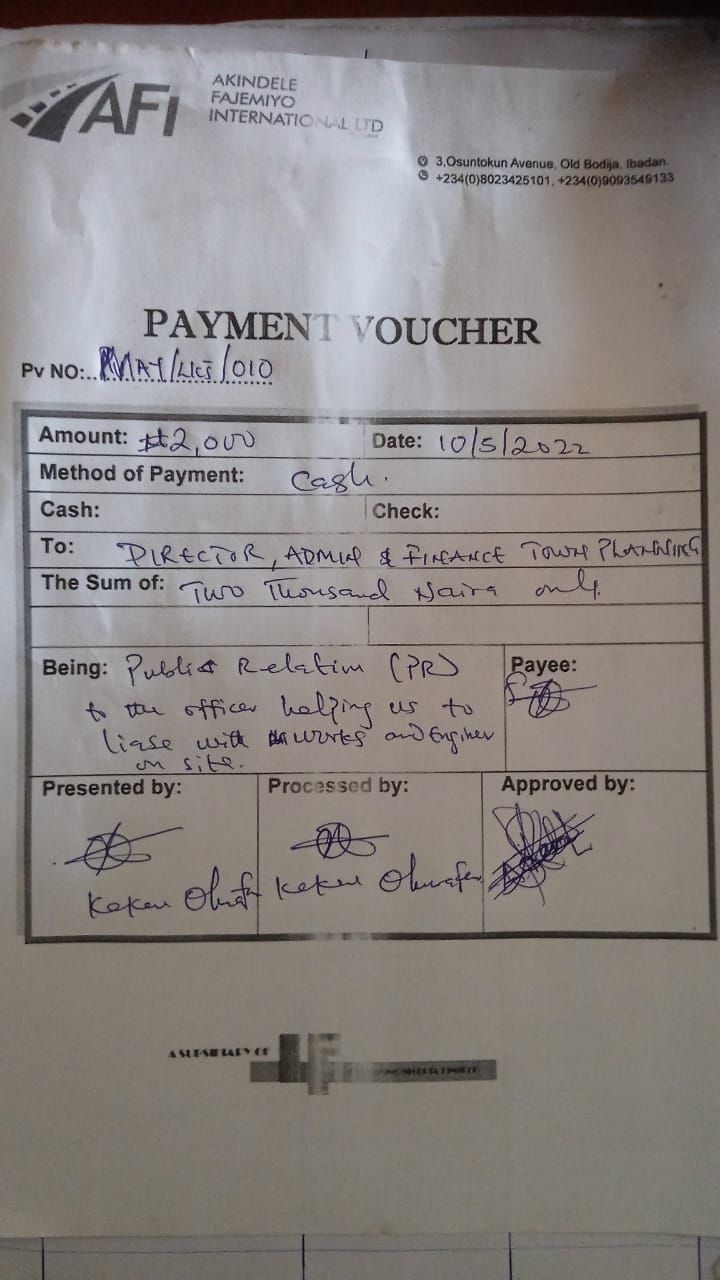 AFI
AKINDELE
FAJEMIYO
INTERNATIONAL LTD
3,Osuntokun Avenue, Old Bodija, Ibadan.
+234(0)8023425101, +234(0)9093549133
PAYMENT VOUCHER
Pv NO:..MAY/LKJ/010
Amount: ₦2,000 Date: 10/5/2022
Method of Payment: Cash.
Cash: Check:
To: DIRECTOR, ADMIN & FINANCE TOWN PLANNING
The Sum of: Two Thousand Naira only.
Being: Public Relation (PR) Payee:
to the officer helping us to
liase with works and Engineer
on site.
Presented by: Processed by: Approved by:
A SUBSIDIARY OF